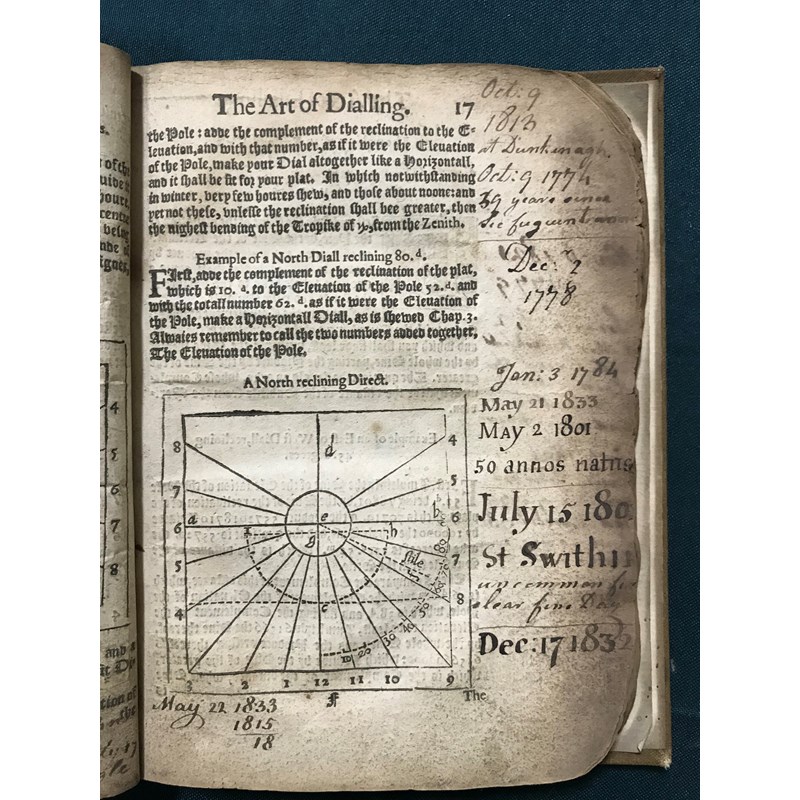 The Art of Dialling. 17
the Pole: adde the complement of the reclination to the E-
leuation, and with that number, as if it were the Eleuation
of the Pole, make your Dial altogether like a Horizontall,
and it shall be fit for your plat. In which notwithstanding
in winter, very few houres shew, and those about noone: and
yet not these, vnlesse the reclination shall bee greater, then
the nighest bending of the Tropike of ♑, from the Zenith.
Example of a North Diall reclining 80. d.
FIrst, adde the complement of the reclination of the plat,
which is 10. d. to the Eleuation of the Pole 52. d. and
with the totall number 62. d. as if it were the Eleuation of
the Pole, make a Horizontall Diall, as is shewed Chap. 3.
Alwaies remember to call the two numbers added together,
The Eleuation of the Pole.
A North reclining Direct.
8 d 4
7 5
a e b 6
6 g h
5 stile 7
4 c 8
10 20 30 40 50
3 2 1 12 11 10 9
F The
May 22 1833
1815
18
Oct: 9
1813
at
Oct: 9 1774
39 years since
Dec: 7
1778
Jan: 3 1784
May 21 1833
May 2 1801
50 annos natus
July 15 180
St Swithin
uncommon
clear fine Day
Dec: 17 183
4
5
6
7
8